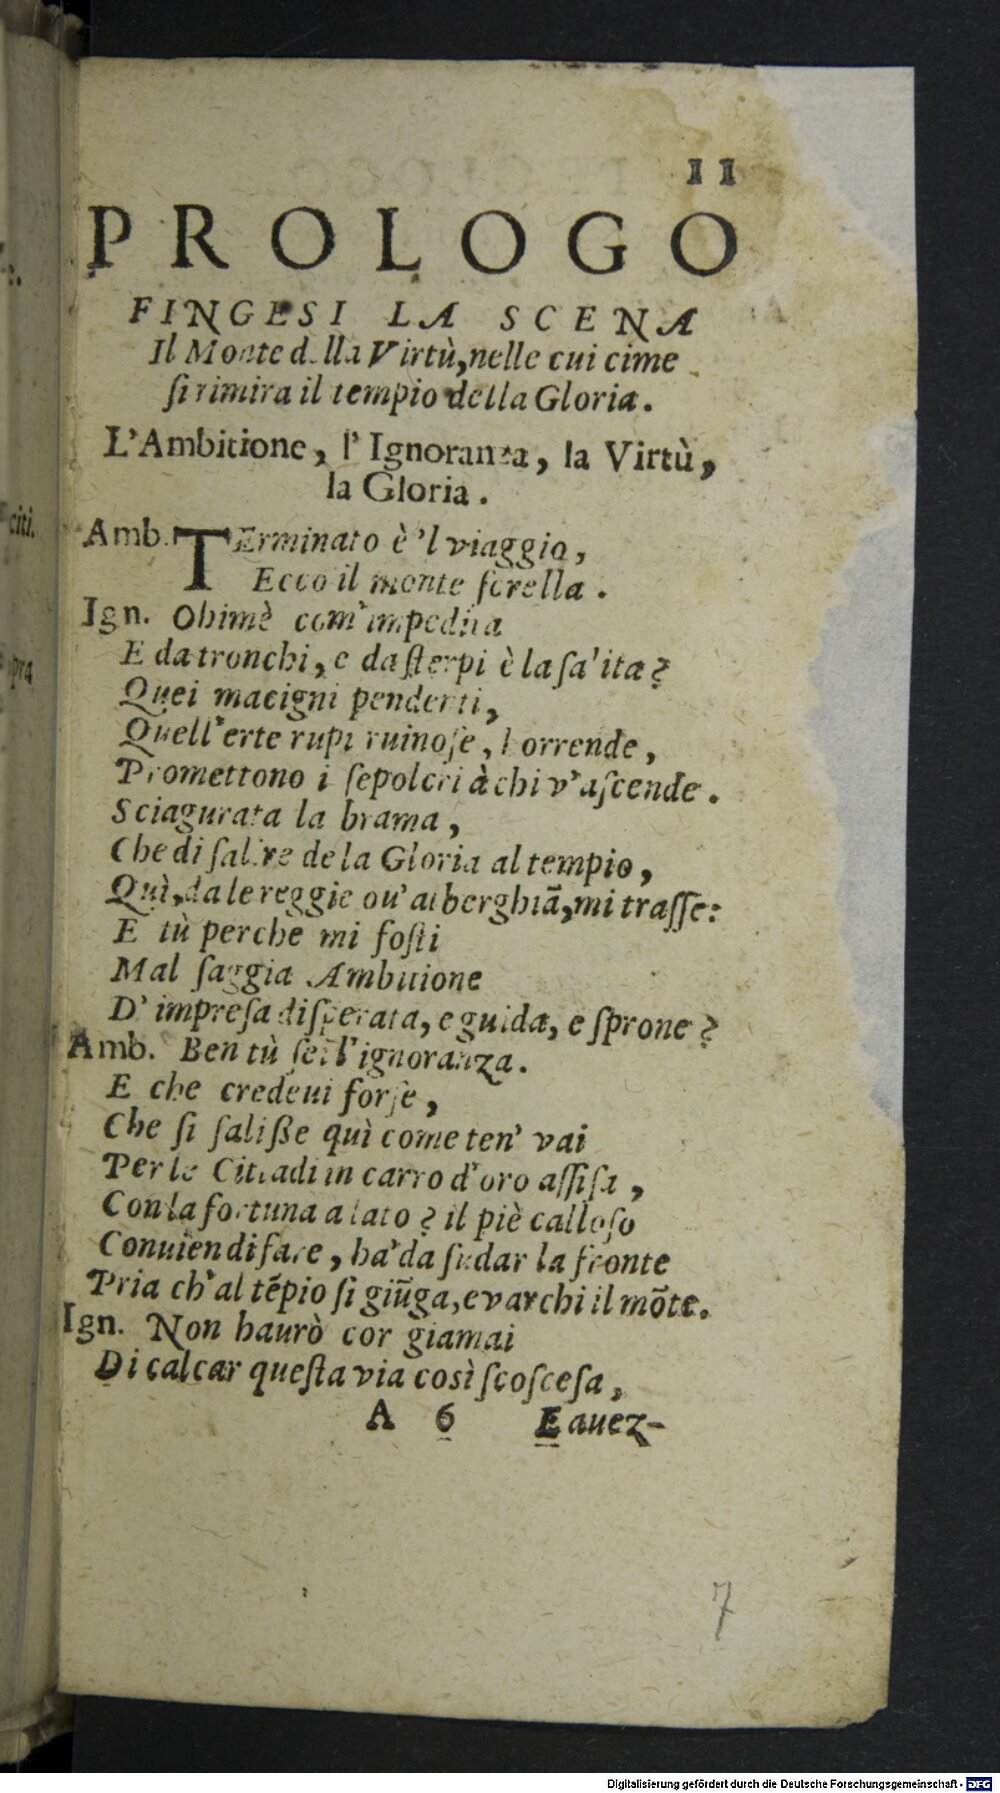 11
PROLOGO
FINGESI LA SCENA
Il Monte della Virtù, nelle cui cime
si rimira il tempio della Gloria.
L'Ambitione, l'Ignoranza, la Virtù,
la Gloria.
Amb. TErminato è 'l viaggio,
Ecco il monte sorella.
Ign. Ohimè com' impedita
E da tronchi, e da sterpi è la salita?
Quei macigni pendenti,
Quell'erte rupi ruinose, horrende,
Promettono i sepolcri à chi v'ascende.
Sciagurata la brama,
Che di salire de la Gloria al tempio,
Quì, da le reggie ou' alberghiã, mi trasse:
E tù perche mi fosti
Mal saggia Ambitione
D' impresa disperata, e guida, e sprone?
Amb. Ben tù sei l'ignoranza.
E che credeui forse,
Che si salisse quì come ten' vai
Per le Cittadi in carro d'oro assisa,
Con la fortuna a lato? il piè calloso
Conuien di fare, ha' da sudar la fronte
Pria ch'al tẽpio si giũga, e varchi il mõte.
Ign. Non haurò cor giamai
Di calcar questa via così scoscesa,
A 6 E auez-
7
citi.
pra
Digitalisierung gefördert durch die Deutsche Forschungsgemeinschaft - DFG